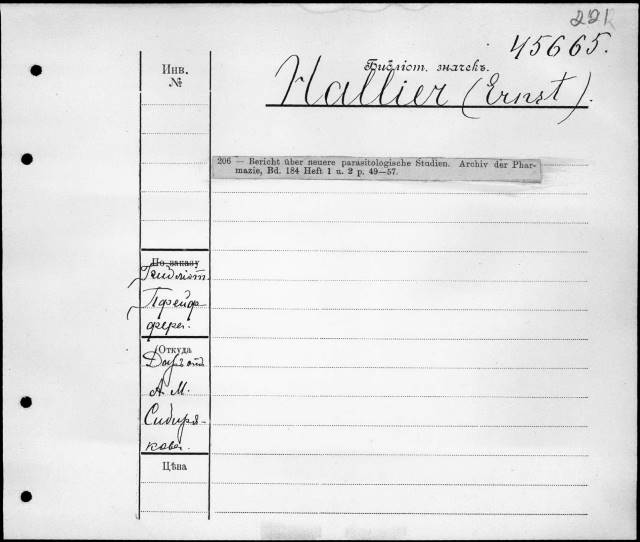 221
45665.
Библіот. значекъ.
Hallier (Ernst).
Инв.
№
206 — Bericht über neuere parasitologische Studien. Archiv der Phar-
mazie, Bd. 184 Heft 1 u. 2 p. 49—57.
По заказу
Библіот.
Пфейф-
фера.
Откуда
А. М.
Сибиря-
кова.
Цѣна